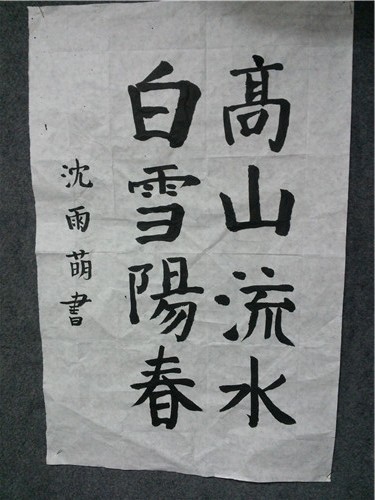 高山流水
白雪陽春
沈雨萌書